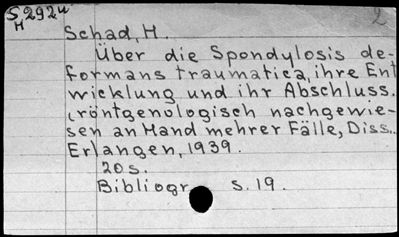 S 292u 2
H
Schad, H.
Über die Spondylosis de-
formans traumatica, ihre Ent
wicklung und ihr Abschluss.
(röntgenologisch nachgewie-
sen an Hand mehrer Fälle, Diss.
Erlangen, 1939.
20 s.
Bibliogr s. 19.